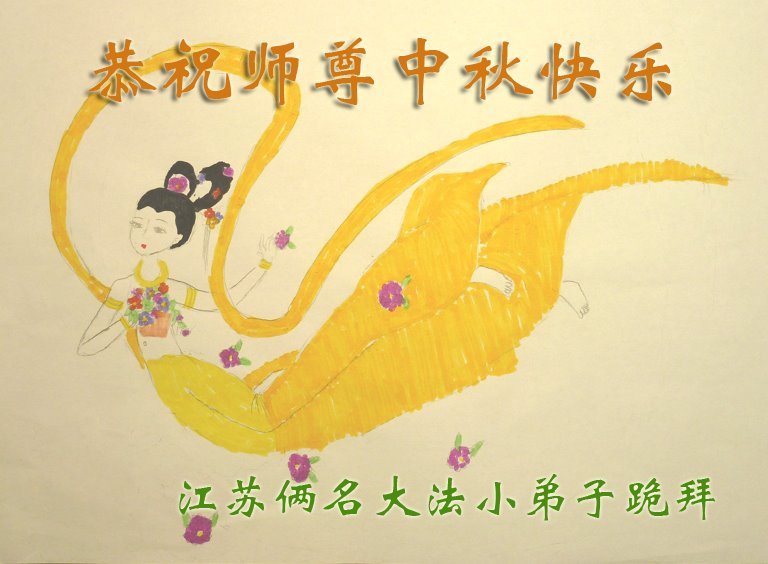 恭祝师尊中秋快乐
江苏俩名大法小弟子跪拜